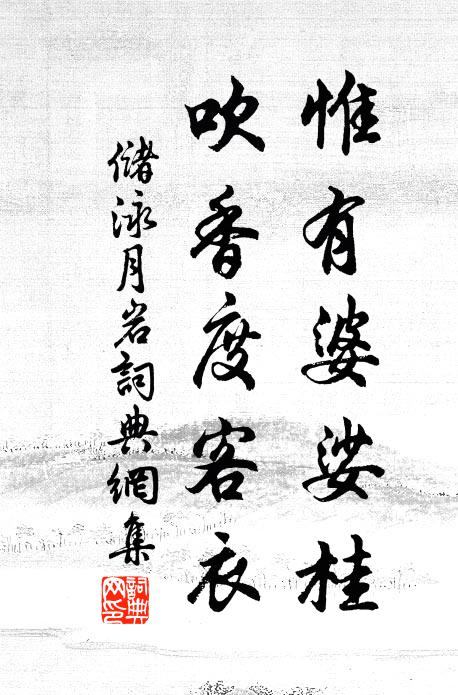 惟有婆娑桂
吹香度客衣
儲泳月岩詞典網集
詞典